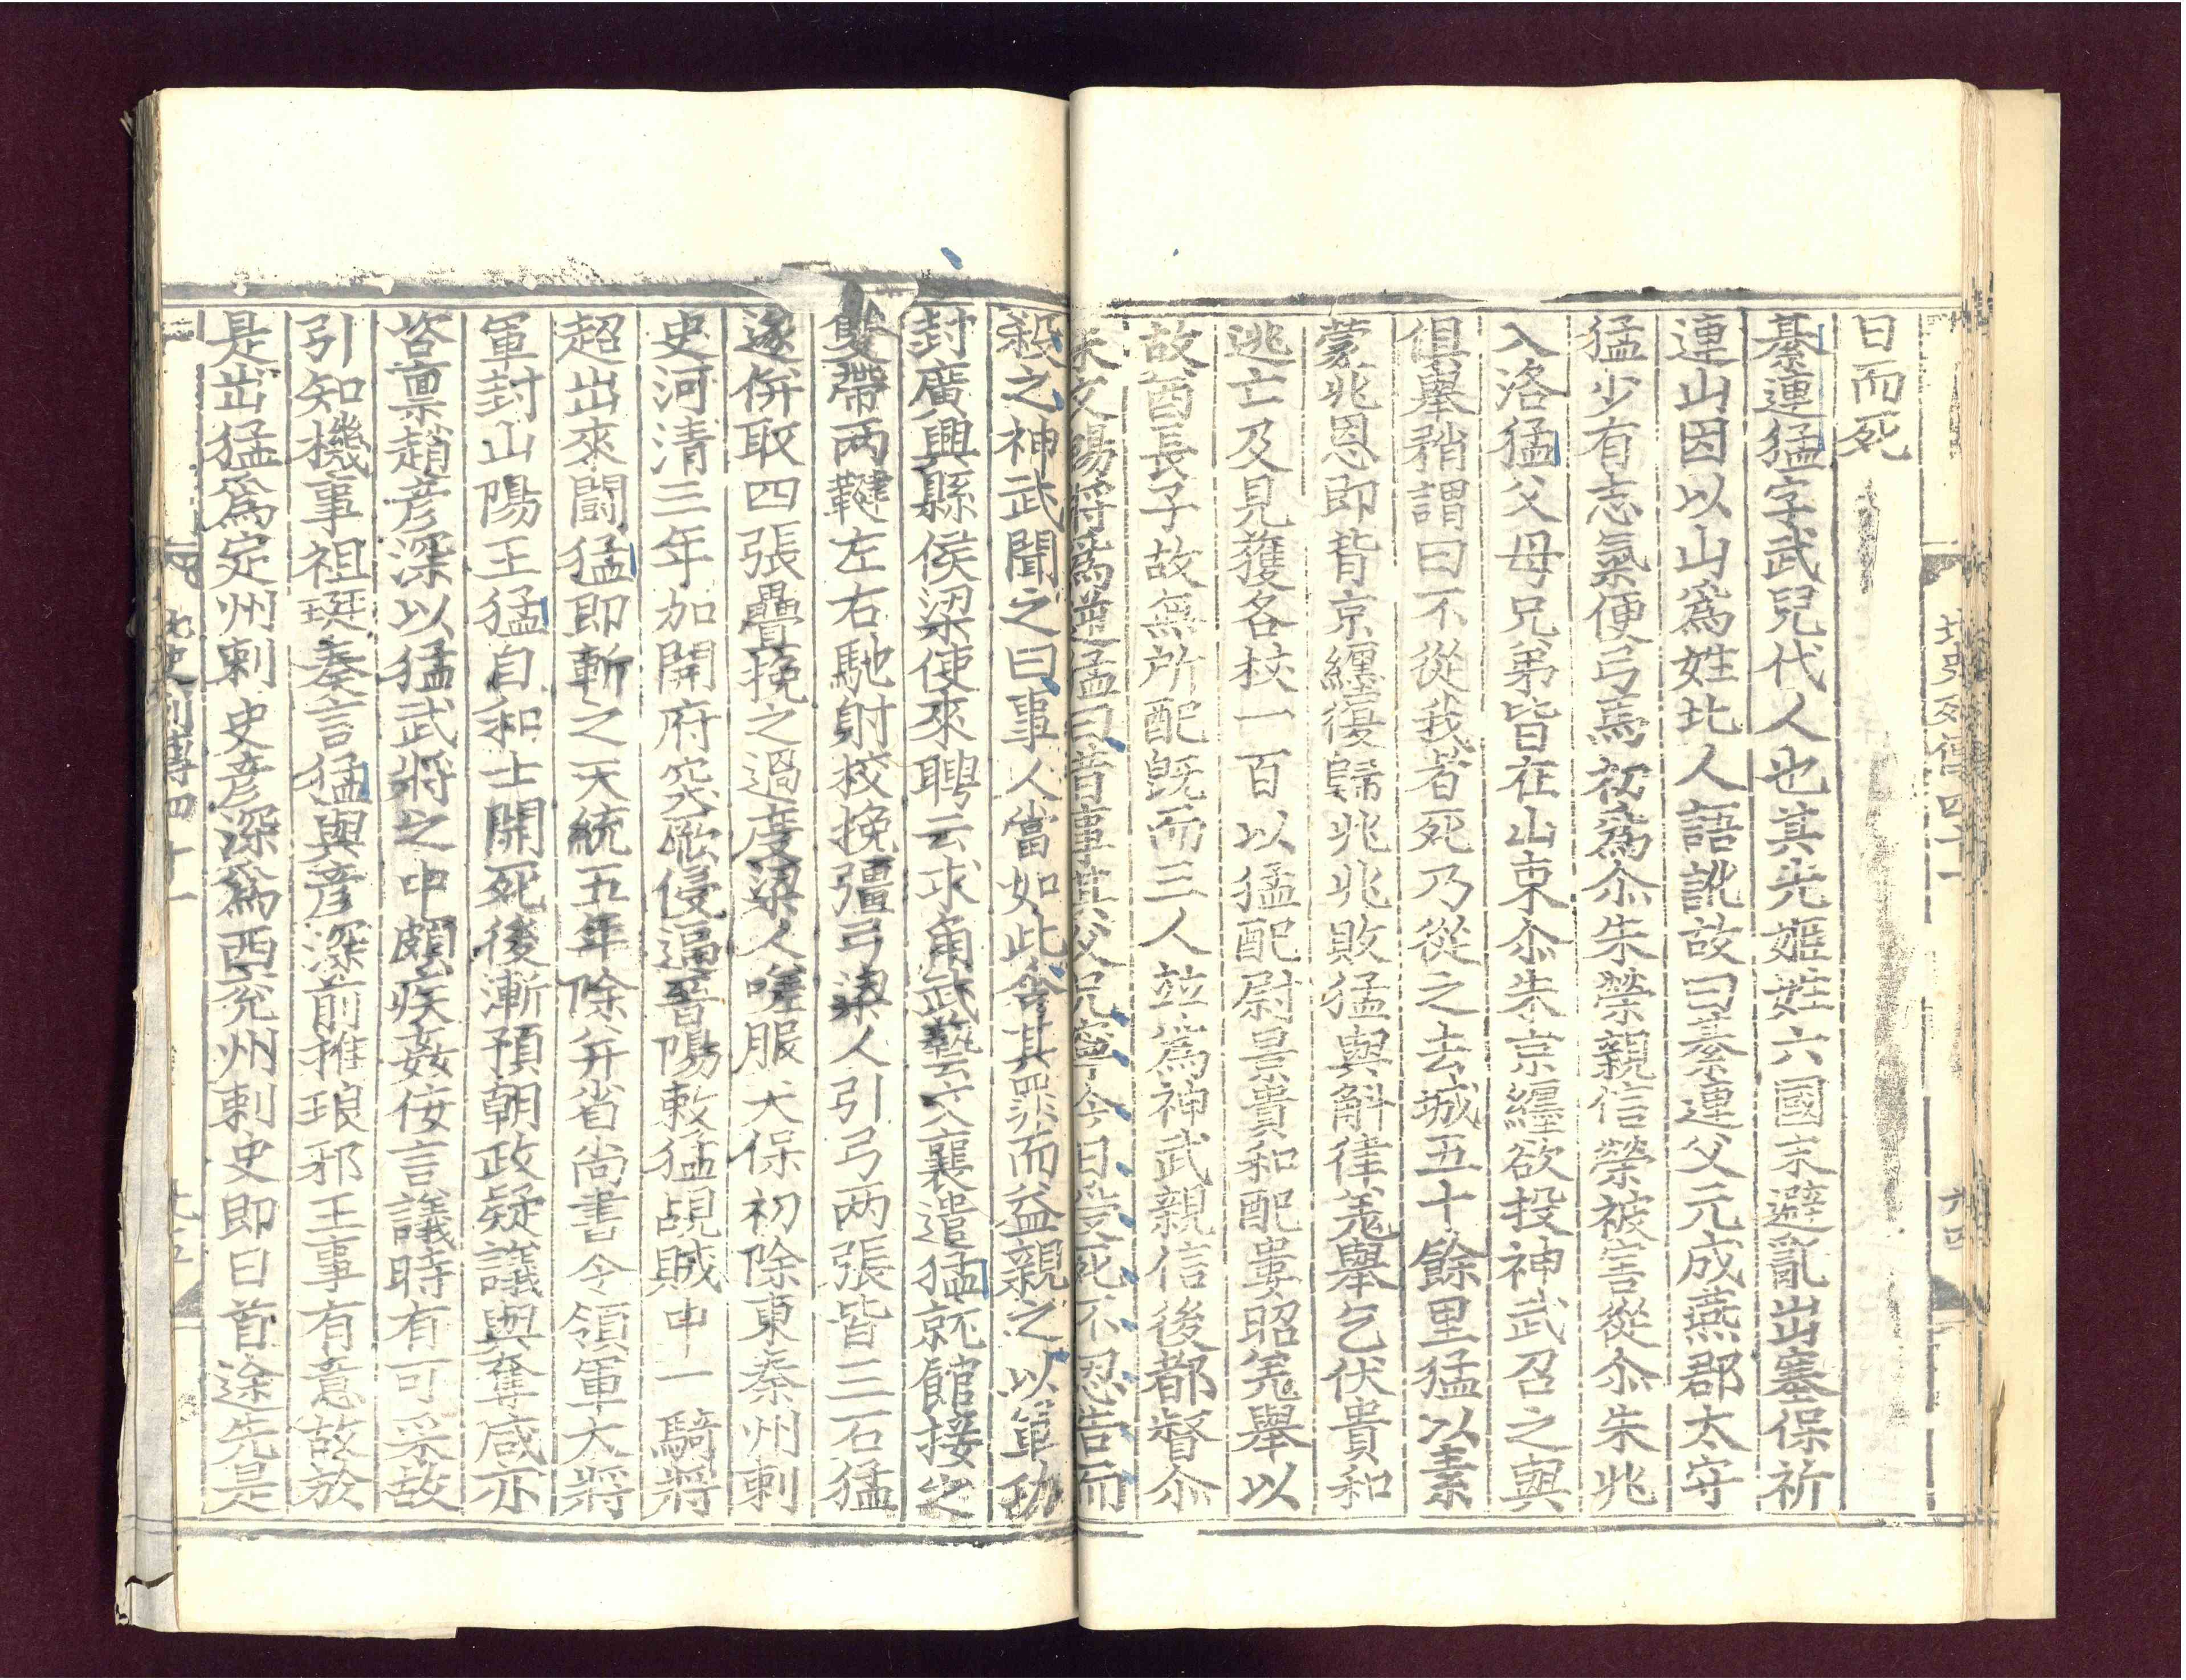 北史列傳四十一
日而死
綦連猛字武兒代人也其先姬姓六國末避亂出塞保祈
連山因以山爲姓北人語訛故曰綦連父元成燕郡太守
猛少有志氣便弓馬初爲尒朱榮親信榮被害從尒朱兆
入洛猛父母兄弟皆在山東尒朱京纏欲投神武召之與
俱舉矟謂曰不從我者死乃從之去城五十餘里猛以素
蒙兆恩即背京纏復歸兆兆敗猛與斛律羌舉乞伏貴和
逃亡及見獲各杖一百以猛配尉景貴和配婁昭羌舉以
故酋長子故無所配旣而三人並爲神武親信後都督尒
朱文暢將爲逆猛曰昔事其父兄寧今日受死不忍告而
殺之神武聞之曰事人當如此舍其罪而益親之以軍功
封廣興縣侯梁使來聘云求角武藝文襄遣猛就館接之
雙帶兩鞬左右馳射校挽彊弓梁人引弓兩張皆三石猛
遂併取四張疊挽之過度梁人嗟服天保初除東秦州刺
史河清三年加開府突厥侵逼晉陽敕猛覘賊中一騎將
超出來鬬猛即斬之天統五年除并省尚書令領軍大將
軍封山陽王猛自和士開死後漸預朝政疑議與奪咸亦
咨稟趙彦深以猛武將之中頗疾姦佞言議時有可采故
引知機事祖珽奏言猛與彦深前推琅邪王事有意故於
是出猛爲定州刺史彦深爲西兖州刺史即日首途先是
北史列傳四十一